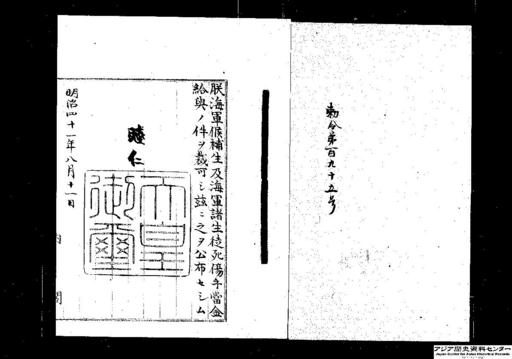 勅令第百九十五号
朕海軍候補生及海軍諸生徒死傷手当金
給与ノ件ヲ裁可シ茲ニ之ヲ公布セシム
睦仁
天皇
御璽
明治四十一年八月十一日
内閣
アジア歴史資料センター
Japan Center for Asian Historical Records